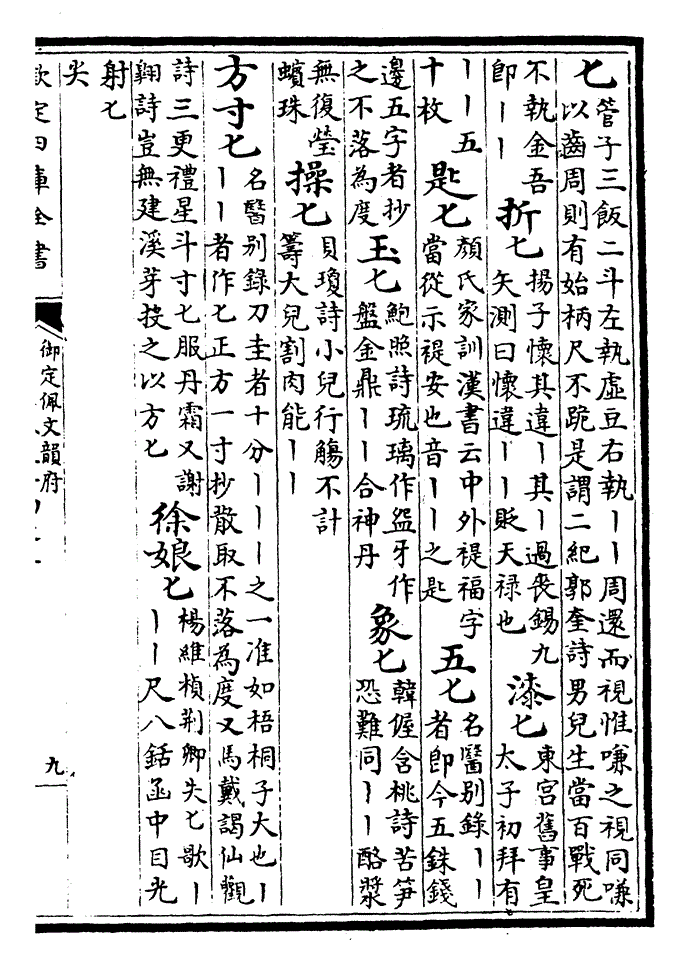 匕管子三飯二斗左執虛豆右執丨丨周還而視惟嗛之視同嗛以齒周則有始柄尺不跪是謂二紀郭奎詩男兒生當百戰死
不執金吾即丨丨折匕揚子懷其違丨其丨過喪錫九矢測曰懷違丨丨貶天禄也漆匕東宮舊事皇太子初拜有
丨丨五十枚匙匕顔氏家訓漢書云中外禔福字當從示禔安也音丨丨之匙五匕名醫别錄丨丨者即今五銖錢
邊五字者抄之不落為度玉匕鮑照詩琉璃作盌牙作盤金鼎丨丨合神丹象匕韓偓含桃詩苦笋恐難同丨丨酪漿
無復瑩蠙珠操匕貝瓊詩小兒行觴不計籌大兒割肉能丨丨
方寸匕名醫别錄刀圭者十分丨丨丨之一准如梧桐子大也丨丨丨者作匕正方一寸抄散取不落為度又馬戴謁仙觀
詩三更禮星斗寸匕服丹霜又謝翺詩豈無建溪芽投之以方匕徐娘匕楊維楨荆卿失匕歌丨丨丨尺八銛函中目光
射匕尖
欽定四庫全書
御定佩文韻府
九